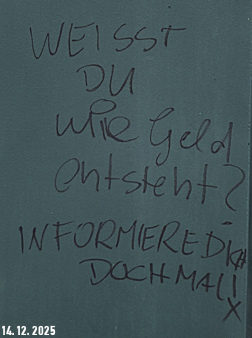 WEISST
DU
wie Geld
entsteht?
INFORMIERE DICH
DOCHMAL!
X
14.12.2025